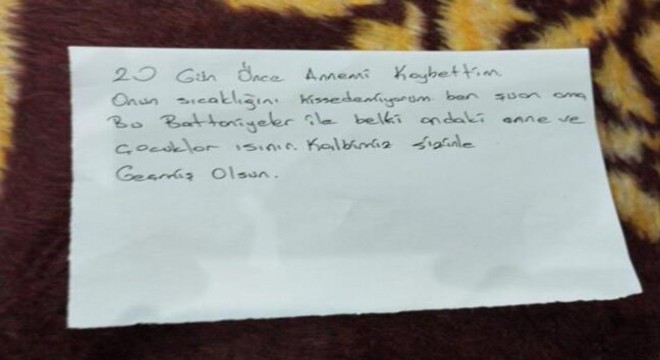 20 Gün Önce Annemi Kaybettim
Onun sıcaklığını hissedemiyorum ben şuan ama
Bu Battaniyeler ile belki ordaki anne ve
Çocuklar ısınır. Kalbimiz Sizinle
Geçmiş Olsun.